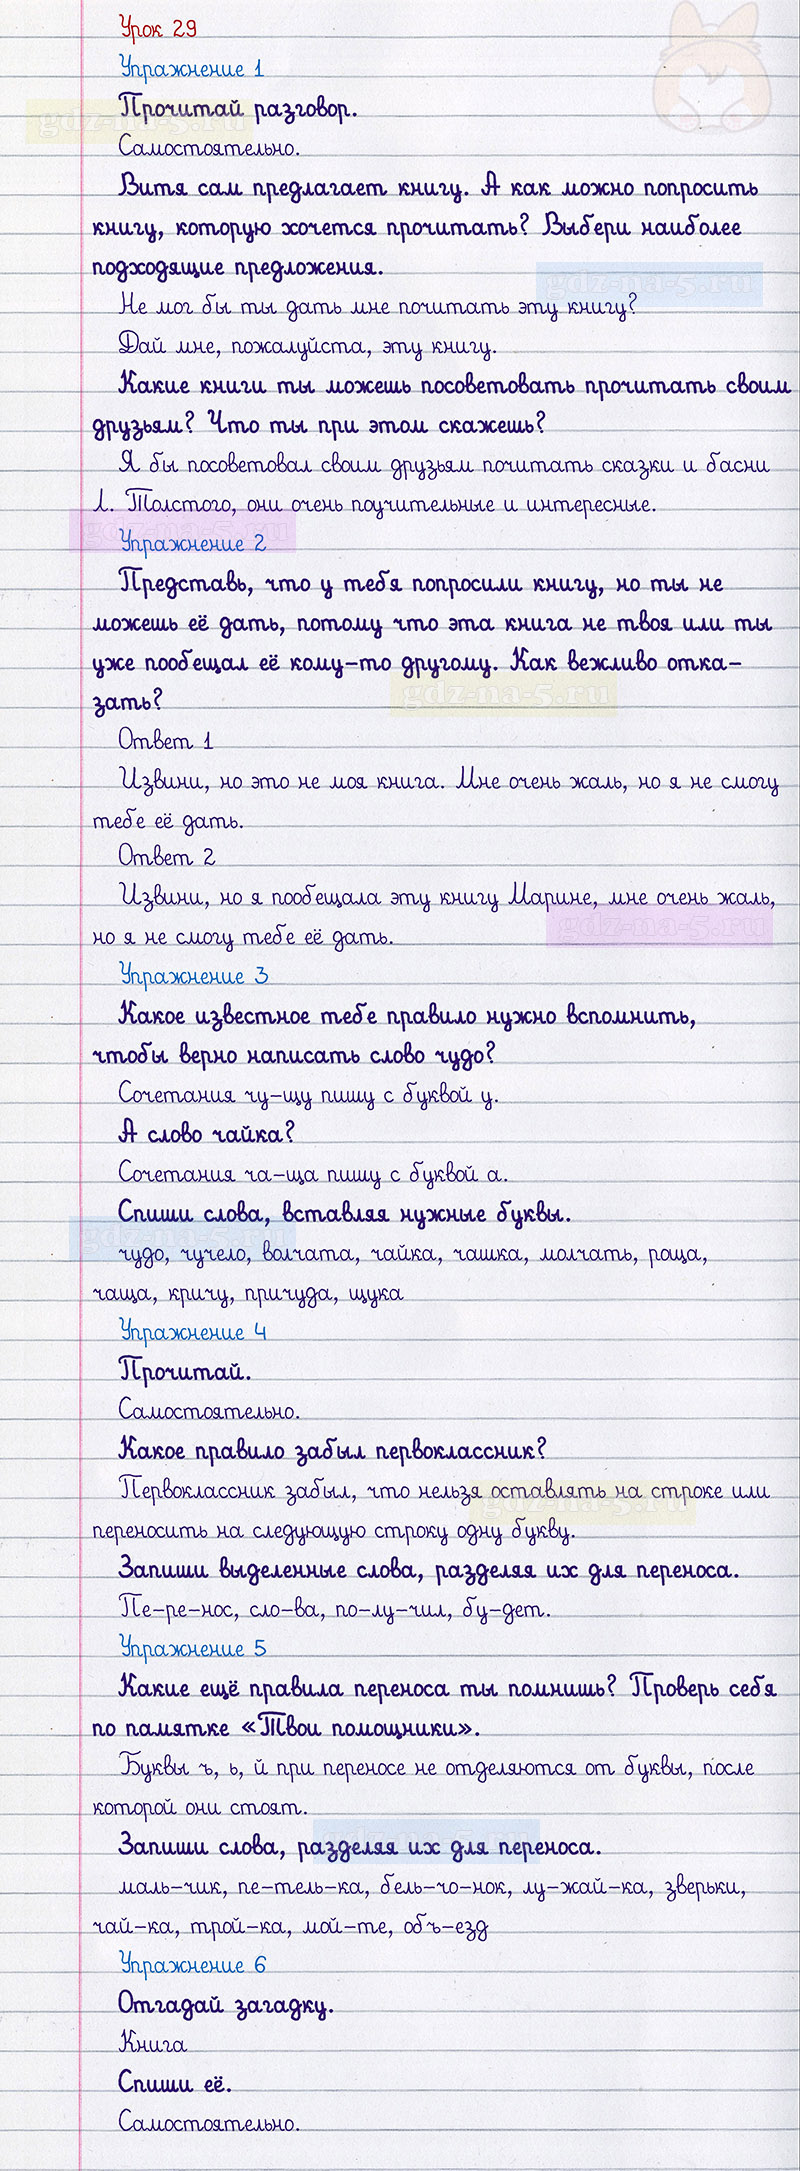 Урок 29
Упражнение 1
Прочитай разговор.
gdz-na-5.ru
Самостоятельно.
Витя сам предлагает книгу. А как можно попросить
книгу, которую хочется прочитать? Выбери наиболее
подходящие предложения.
gdz-na-5.ru
Не мог бы ты дать мне почитать эту книгу?
Дай мне, пожалуйста, эту книгу.
Какие книги ты можешь посоветовать прочитать своим
друзьям? Что ты при этом скажешь?
Я бы посоветовал своим друзьям почитать сказки и басни
Л. Толстого, они очень поучительные и интересные.
gdz-na-5.ru
Упражнение 2
Представь, что у тебя попросили книгу, но ты не
можешь её дать, потому что эта книга не твоя или ты
уже пообещал её кому-то другому. Как вежливо отка-
gdz-na-5.ru
зать?
Ответ 1
Извини, но это не моя книга. Мне очень жаль, но я не смогу
тебе её дать.
Ответ 2
Извини, но я пообещала эту книгу Марине, мне очень жаль,
gdz-na-5.ru
но я не смогу тебе её дать.
Упражнение 3
Какое известное тебе правило нужно вспомнить,
чтобы верно написать слово чудо?
Сочетания чу-щу пишу с буквой у.
А слово чайка?
Сочетания ча-ща пишу с буквой а.
Спиши слова, вставляя нужные буквы.
gdz-na-5.ru
чудо, чучело, волчата, чайка, чашка, молчать, роща,
чаща, кричу, причуда, щука
Упражнение 4
Прочитай.
Самостоятельно.
Какое правило забыл первоклассник?
Первоклассник забыл, что нельзя оставлять на строке или
gdz-na-5.ru
переносить на следующую строку одну букву.
Запиши выделенные слова, разделяя их для переноса.
Пе-ре-нос, сло-ва, по-лу-чил, бу-дет.
Упражнение 5
Какие ещё правила переноса ты помнишь? Проверь себя
по памятке «Твои помощники».
Буквы ъ, ь, й при переносе не отделяются от буквы, после
которой они стоят.
gdz-na-5.ru
Запиши слова, разделяя их для переноса.
маль-чик, пе-тель-ка, бель-чо-нок, лу-жай-ка, зверьки,
чай-ка, трой-ка, мой-те, объ-езд
Упражнение 6
Отгадай загадку.
Книга
Спиши её.
Самостоятельно.